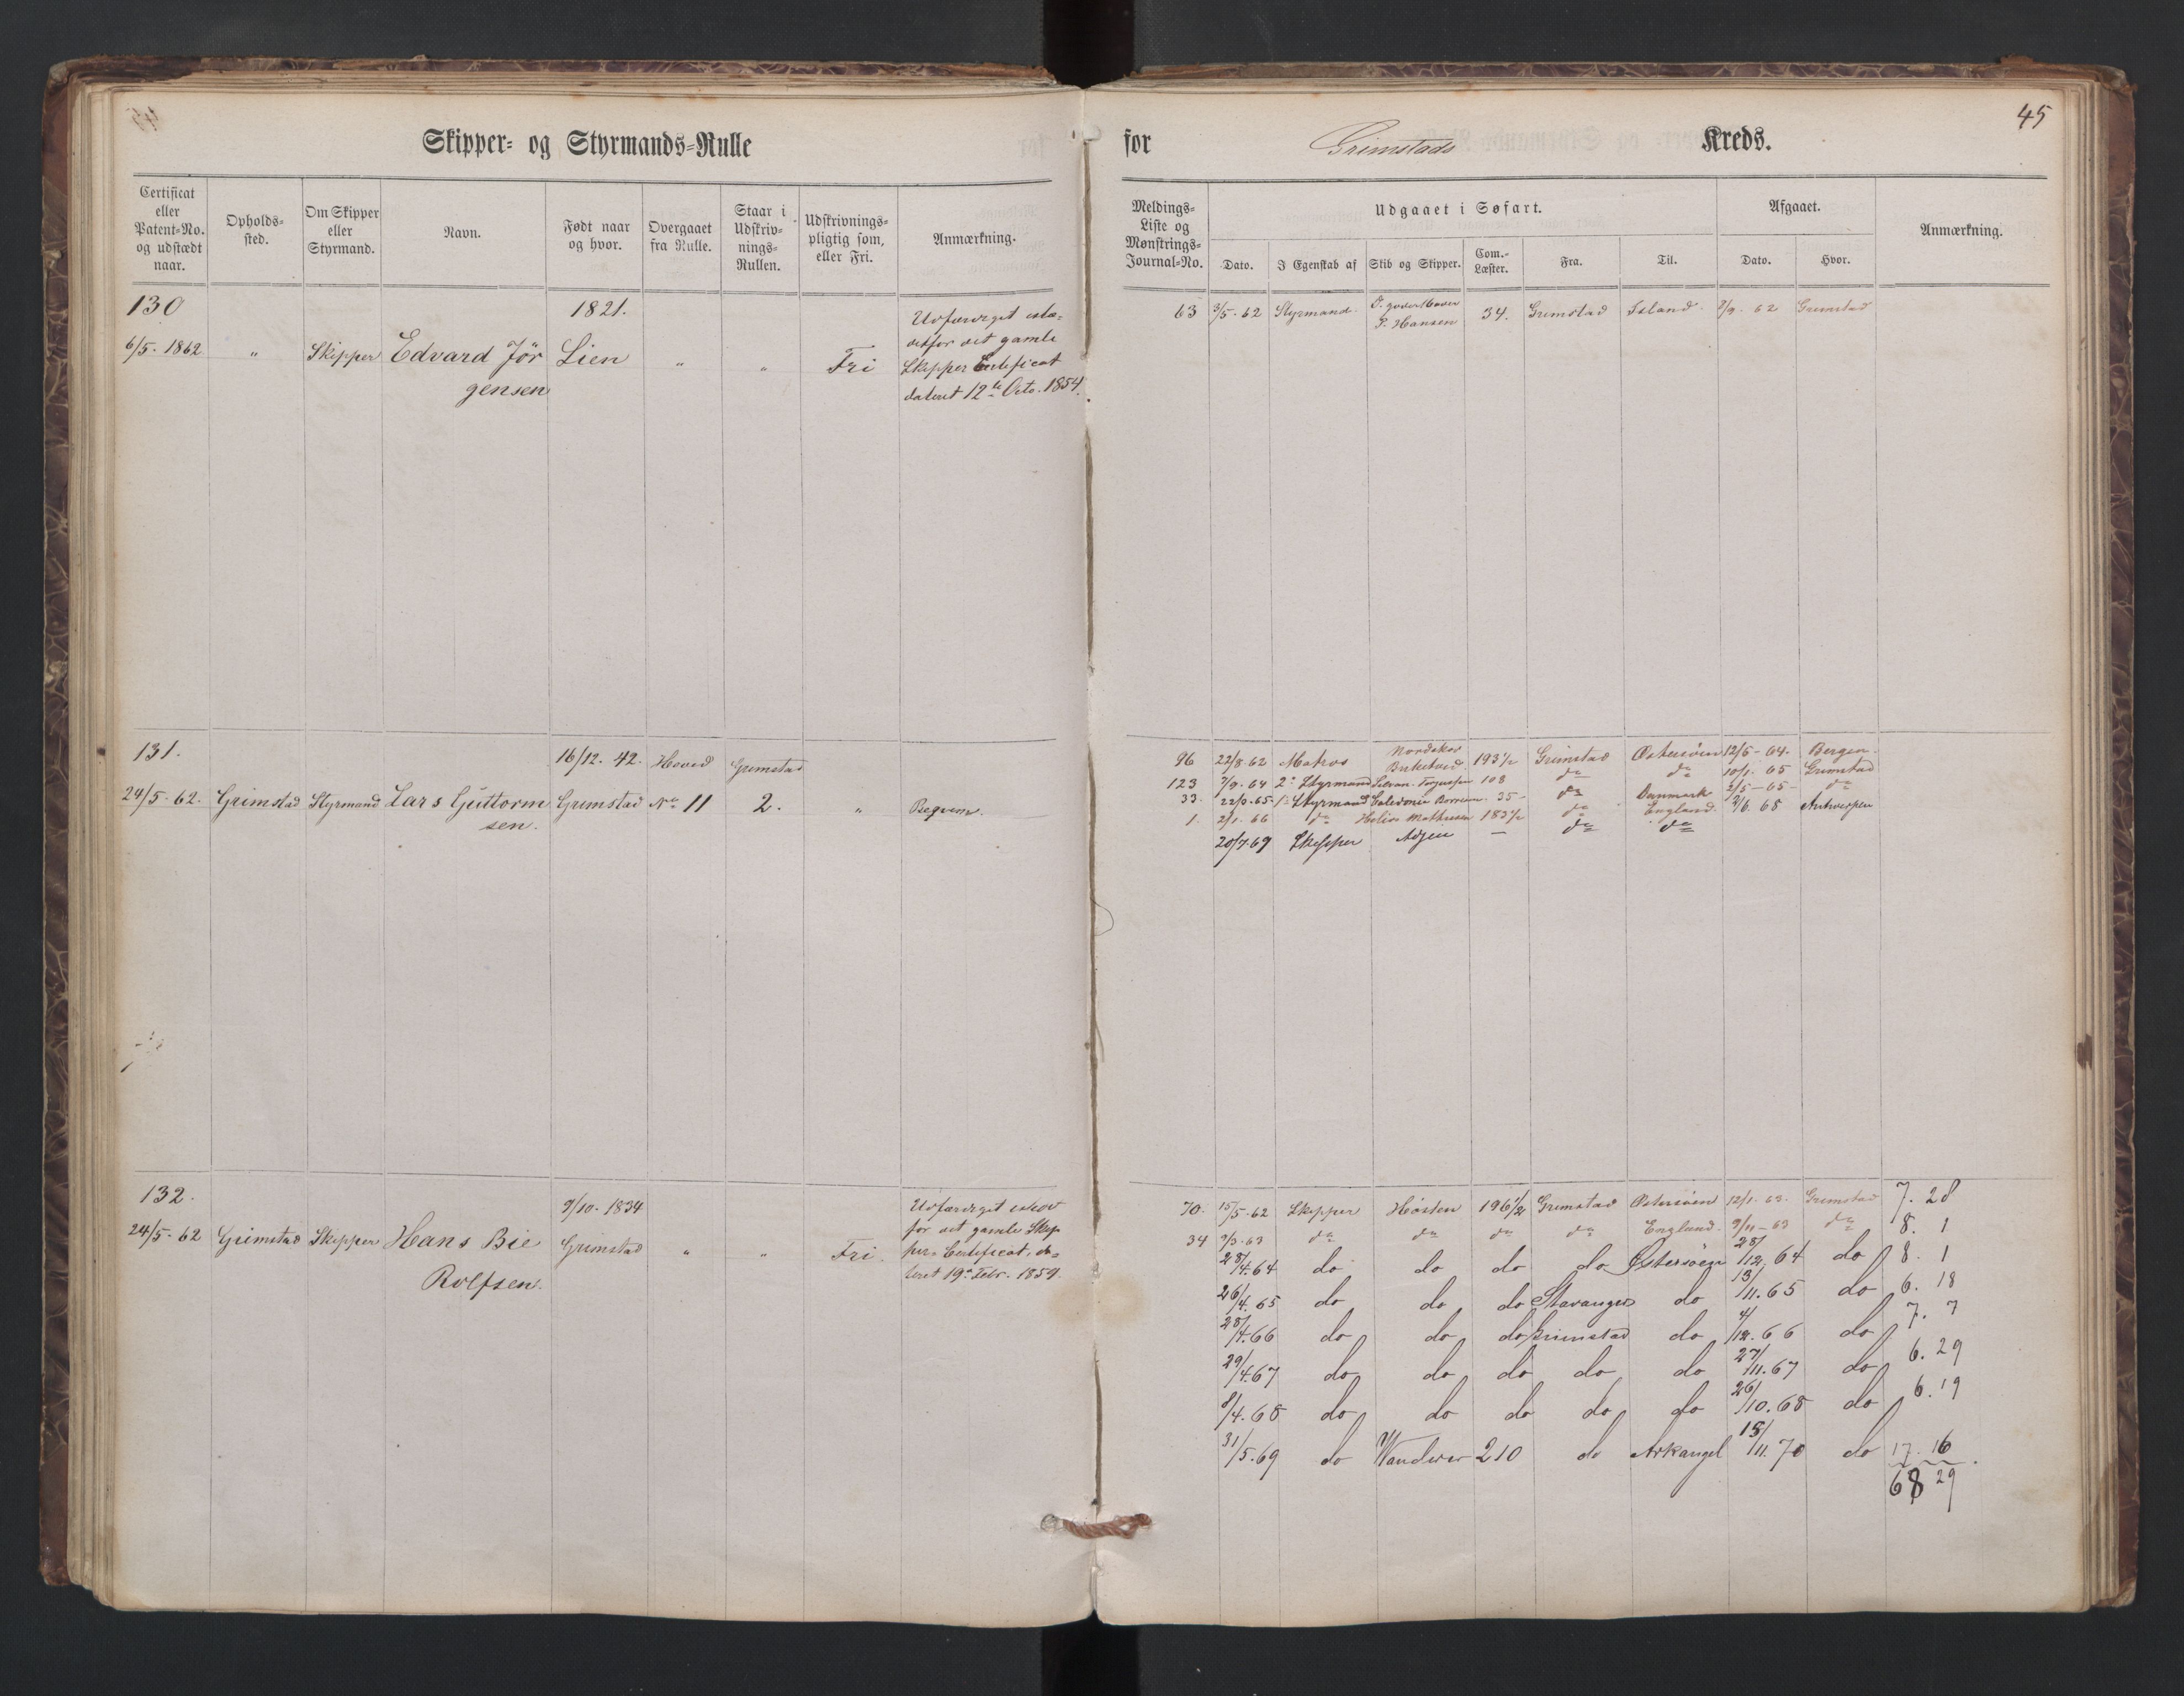 Skipper- og Styrmands-Rulle
for Grimstads Kreds.
45
Certificat eller Patent-No. og udstædt naar.
Opholds-sted.
Om Skipper eller Styrmand.
Navn.
Født naar og hvor.
Overgaaet fra Rulle.
Staar i Udskriv-nings-Rullen.
Udskrivnings-pligtig som, eller Fri.
Anmærkning.
Meldings-Liste og Mønstrings-Journal-No.
Udgaaet i Søfart.
Dato.
I Egenskab af
Skib og Skipper.
Com.-Læster.
Fra.
Til.
Afgaaet.
Dato.
Hvor.
Anmærkning.
130
6/5. 1862 " Skipper Edvard Jör
gensen
1821.
Lien " " Fri
Udfærdiget iste-
detfor det gamle
Skipper Certificat
dateret 12te Octo. 1854.
63 3/5. 62 Styrmand P. Hansen 34. Grimstad Island 62 Grimstad
131.
24/5. 62. Grimstad Styrmand Lars Guttorm
sen.
16/12. 42.
Grimstad
Hoved
No 11
Grimstad
2. " Beqvem.
96 22/8 62 Matros Nordskov
Birketved 193½ Grimstad Østersöen 12/5 - 64. Bergen.
123 7/9. 64 2. Styrmand 108 do do 10/1. 65 Grimstad
33. 22/3. 65 1. Styrmand Caledonia 35 - do Danmark 2/5 - 65 - do
1. 2/1. 66 do Helios Mathiesen 183½ do England. 2/6 68 Antwerpen
20/7 69 Skipper — do do
132.
24/5. 62 Grimstad Skipper Hans Bie
Rolfsen.
9/10. 1834
Grimstad " " Fri.
Udfærdiget istedt
for det gamle Skip
per-Certificat, da-
teret 19. Febr. 1859.
70. 15/5. 62 Skipper Hösten 196½ Grimstad Østersöen 12/1. 63. Grimstad 7. 28
34 3. 63 do do do do England. 9/11 - 63 do 8. 1
28/4. 64 do do do do Østersöen 28/12. 64 do 8. 1
26/4. 65 do do do Stavanger do 13/11. 65 do 6. 18
28/4. 66 do do do Grimstad do 4/12. 66 do 7. 7
29/4. 67 do do do do do 27/11. 67 do 6. 29
8/4. 68 do do do do do 26/10. 68 do 6. 19
31/5. 69 do Wanderer 210 do Arkangel 15/11. 70 do 17. 16
68 29